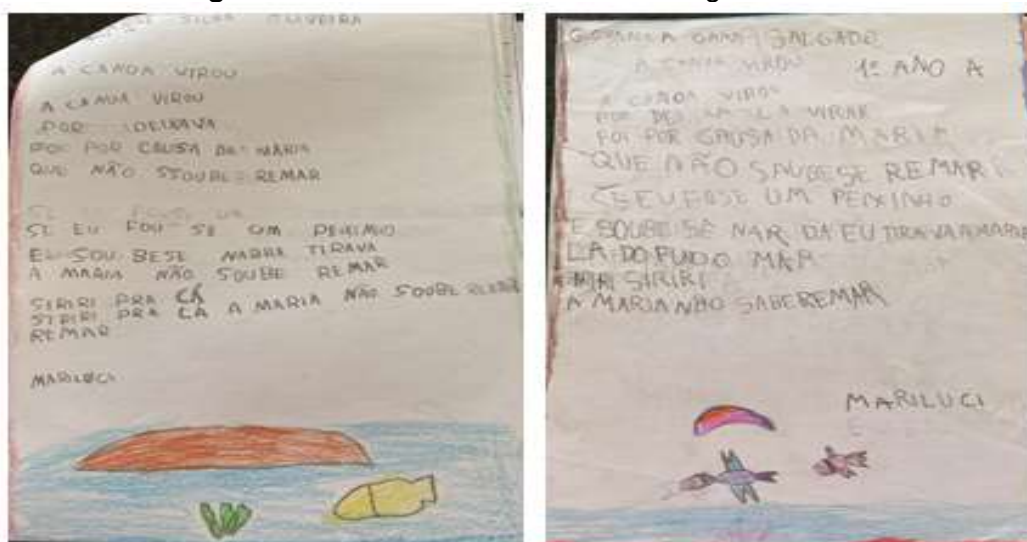 SILVA OLIVEIRA
A CANOA VIROU
A CANOA VIROU
POR DEIXAVA
FOI POR CAUSA DA MARIA
QUE NÃO SSOUBE REMAR
SE EU FOU SE UM
SE EU FOU SE UM PEIXIMIO
EU SOU BESE NADRA TIRAVA
A MARIA NÃO SOUBE REMAR
SIRIRI PRA CÁ
SIRIRI PRA LA A MARIA NÃO SOUBE REMAR
REMAR
MARILUCI
GAMA SALGADO
A CANOA VIROU 1º ANO A
A CANOA VIROU
POR DEI LA VIRAR
FOI POR CAUSA DA MARIA
QUE NÃO SAUBESE REMAR
CE EU FOSE UM PEIXINHO
E SOUBE SE NAR DA EU TIRAVA A MARIA
LA DO FUDO MAR
SIRIRI
A MARIA NÃO SABE REMAR
MARILUCI